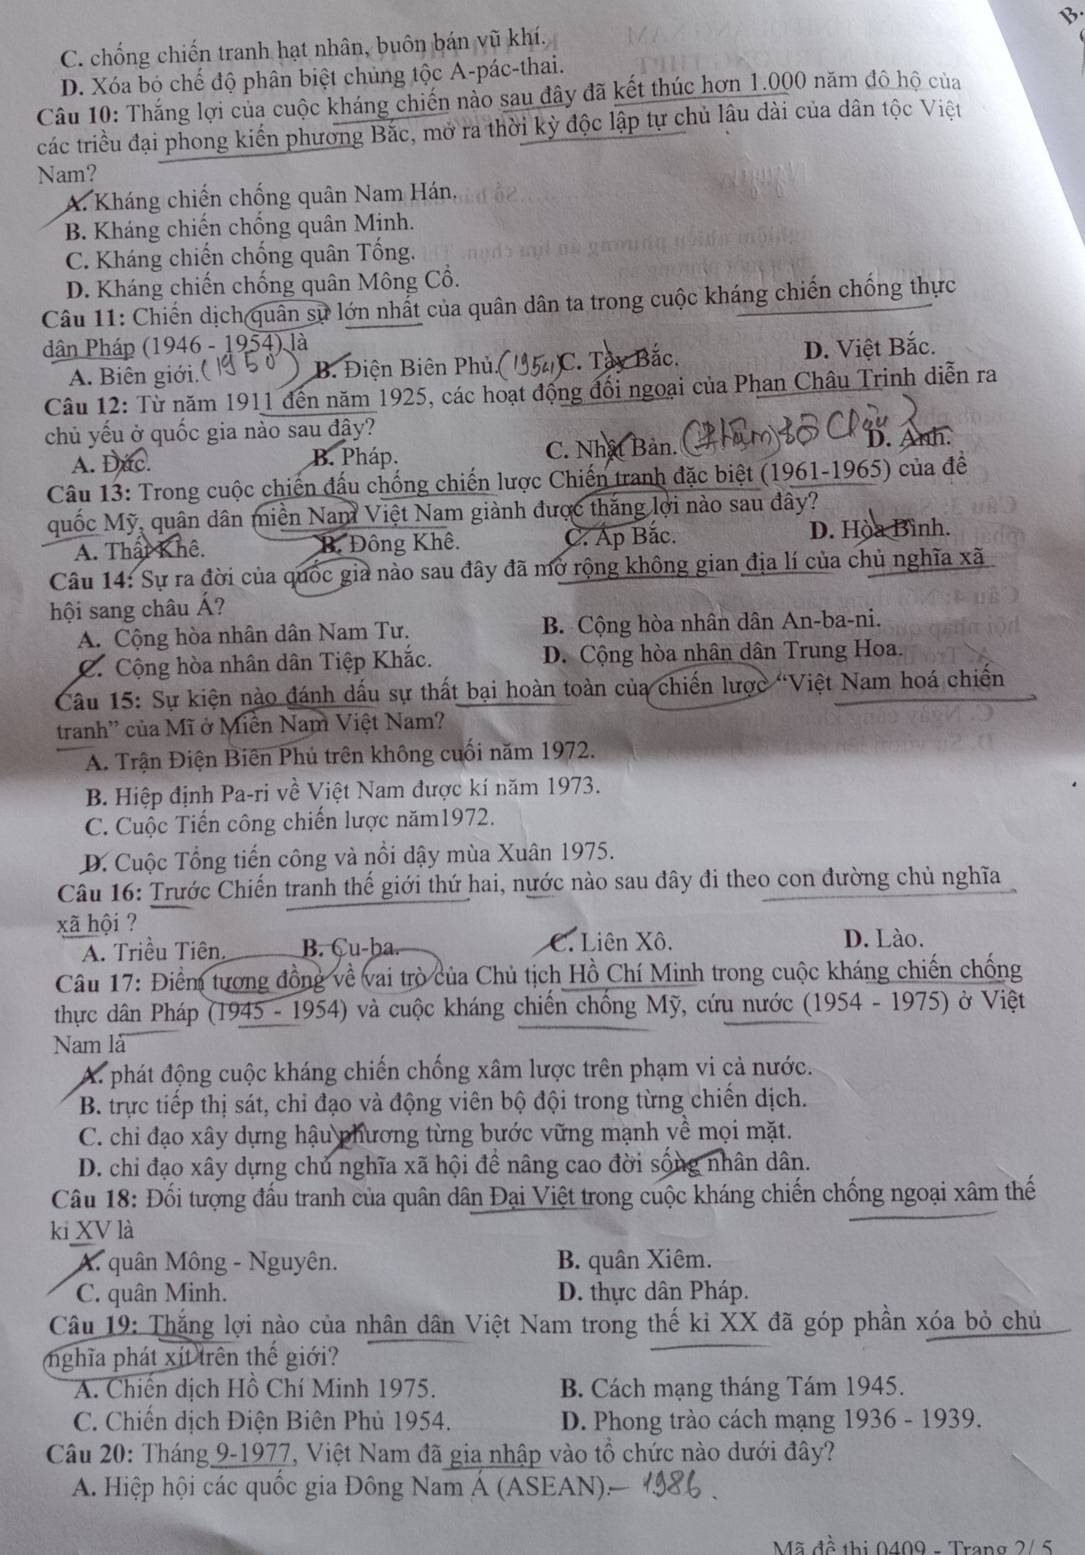 B.
C. chống chiến tranh hạt nhân, buôn bán vũ khí.
D. Xóa bỏ chế độ phân biệt chủng tộc A-pác-thai.
Câu 10: Thắng lợi của cuộc kháng chiến nào sau đây đã kết thúc hơn 1.000 năm đô hộ của
các triều đại phong kiến phương Bắc, mở ra thời kỳ độc lập tự chủ lâu dài của dân tộc Việt
Nam?
A. Kháng chiến chống quân Nam Hán.
B. Kháng chiến chống quân Minh.
C. Kháng chiến chống quân Tống.
D. Kháng chiến chống quân Mông Cổ.
Câu 11: Chiến dịch quân sự lớn nhất của quân dân ta trong cuộc kháng chiến chống thực
dân Pháp (1946 - 1954) là
A. Biên giới. (1950) B. Điện Biên Phủ. (1954) C. Tây Bắc. D. Việt Bắc.
Câu 12: Từ năm 1911 đến năm 1925, các hoạt động đối ngoại của Phan Châu Trinh diễn ra
chủ yếu ở quốc gia nào sau đây?
A. Đức. B. Pháp. C. Nhật Bản. D. Anh.
Câu 13: Trong cuộc chiến đấu chống chiến lược Chiến tranh đặc biệt (1961-1965) của đế
quốc Mỹ, quân dân miền Nam Việt Nam giành được thắng lợi nào sau đây?
A. Thất Khê. B. Đông Khê. C. Ấp Bắc. D. Hòa Bình.
Câu 14: Sự ra đời của quốc gia nào sau đây đã mở rộng không gian địa lí của chủ nghĩa xã
hội sang châu Á?
A. Cộng hòa nhân dân Nam Tư. B. Cộng hòa nhân dân An-ba-ni.
C. Cộng hòa nhân dân Tiệp Khắc. D. Cộng hòa nhân dân Trung Hoa.
Câu 15: Sự kiện nào đánh dấu sự thất bại hoàn toàn của chiến lược “Việt Nam hoá chiến
tranh” của Mĩ ở Miền Nam Việt Nam?
A. Trận Điện Biên Phủ trên không cuối năm 1972.
B. Hiệp định Pa-ri về Việt Nam được kí năm 1973.
C. Cuộc Tiến công chiến lược năm1972.
D. Cuộc Tổng tiến công và nổi dậy mùa Xuân 1975.
Câu 16: Trước Chiến tranh thế giới thứ hai, nước nào sau đây đi theo con đường chủ nghĩa
xã hội ?
A. Triều Tiên. B. Cu-ba. C. Liên Xô. D. Lào.
Câu 17: Điểm tương đồng về vai trò của Chủ tịch Hồ Chí Minh trong cuộc kháng chiến chống
thực dân Pháp (1945 - 1954) và cuộc kháng chiến chống Mỹ, cứu nước (1954 - 1975) ở Việt
Nam là
A. phát động cuộc kháng chiến chống xâm lược trên phạm vi cả nước.
B. trực tiếp thị sát, chỉ đạo và động viên bộ đội trong từng chiến dịch.
C. chỉ đạo xây dựng hậu phương từng bước vững mạnh về mọi mặt.
D. chỉ đạo xây dựng chủ nghĩa xã hội để nâng cao đời sống nhân dân.
Câu 18: Đối tượng đấu tranh của quân dân Đại Việt trong cuộc kháng chiến chống ngoại xâm thế
kỉ XV là
A. quân Mông - Nguyên. B. quân Xiêm.
C. quân Minh. D. thực dân Pháp.
Câu 19: Thắng lợi nào của nhân dân Việt Nam trong thế kỉ XX đã góp phần xóa bỏ chủ
nghĩa phát xít trên thế giới?
A. Chiến dịch Hồ Chí Minh 1975. B. Cách mạng tháng Tám 1945.
C. Chiến dịch Điện Biên Phủ 1954. D. Phong trào cách mạng 1936 - 1939.
Câu 20: Tháng 9-1977, Việt Nam đã gia nhập vào tổ chức nào dưới đây?
A. Hiệp hội các quốc gia Đông Nam Á (ASEAN). — 1986.
Mã đề thi 0409 - Trang 2/ 5